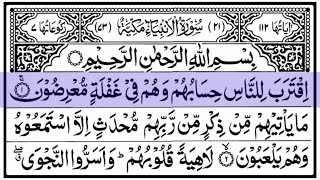 اٰيَاتُهَا ١١٢ (٢١) سُوْرَةُ الْاَنْۢبِيَآءِ مَكِّيَّةٌ (٧٣) رُكُوْعَاتُهَا ٧
بِسْمِ اللّٰهِ الرَّحْمٰنِ الرَّحِيْمِ
اِقْتَرَبَ لِلنَّاسِ حِسَابُهُمْ وَهُمْ فِيْ غَفْلَةٍ مُّعْرِضُوْنَ ۝١
مَا يَاْتِيْهِمْ مِّنْ ذِكْرٍ مِّنْ رَّبِّهِمْ مُّحْدَثٍ اِلَّا اسْتَمَعُوْهُ
وَهُمْ يَلْعَبُوْنَ ۝٢ لَاهِيَةً قُلُوْبُهُمْ ؕ وَاَسَرُّوا النَّجْوَى